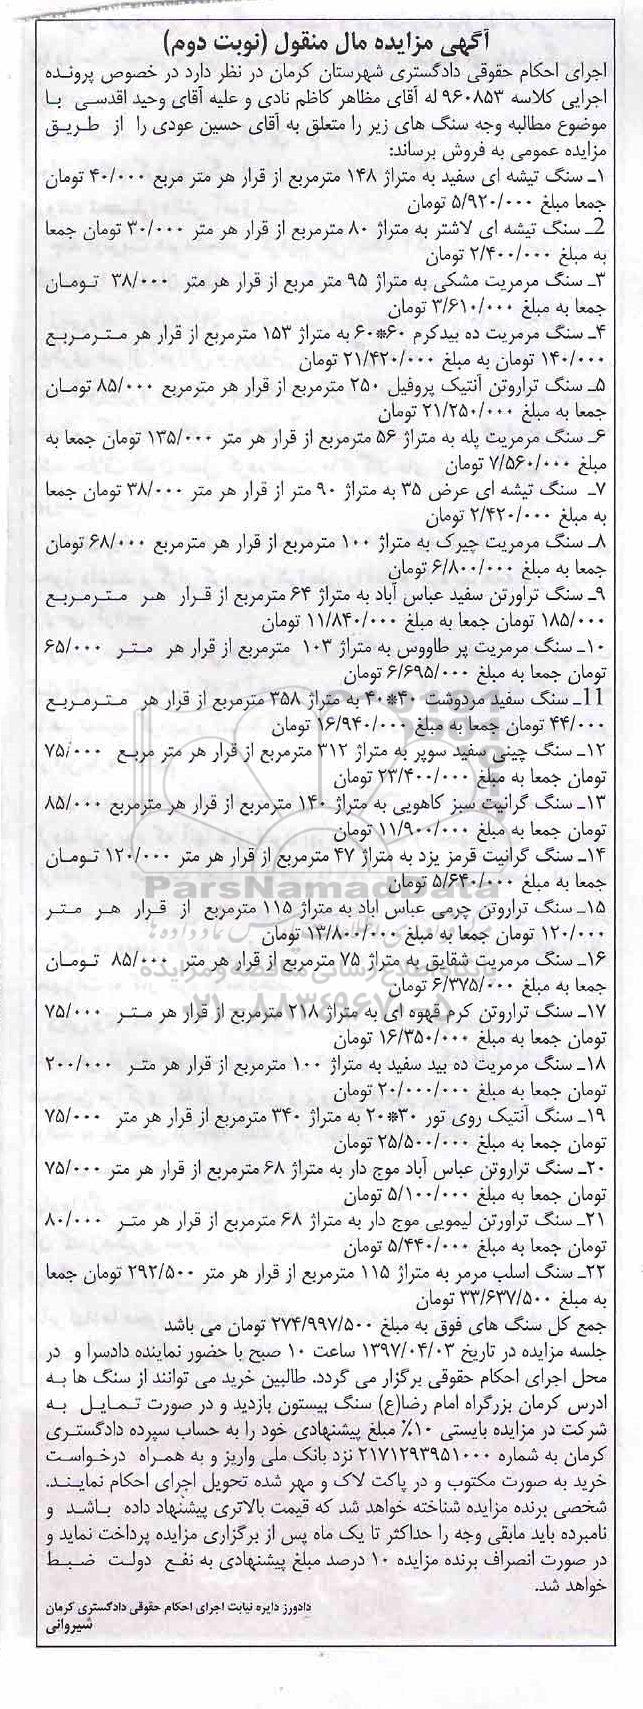 آگهی مزایده مال منقول (نوبت دوم)
اجرای احکام حقوقی دادگستری شهرستان کرمان در نظر دارد در خصوص پرونده
اجرایی کلاسه ۹۶۰۸۵۳ له آقای مظاهر کاظم نادی و علیه آقای وحید اقدسی با
موضوع مطالبه وجه سنگ های زیر را متعلق به آقای حسین عودی را از طریق
مزایده عمومی به فروش برساند:
۱ـ سنگ تیشه ای سفید به متراژ ۱۴۸ مترمربع از قرار هر متر مربع ۴۰/۰۰۰ تومان
جمعا مبلغ ۵/۹۲۰/۰۰۰ تومان
2ـ سنگ تیشه ای لاشتر به متراژ ۸۰ مترمربع از قرار هر متر ۳۰/۰۰۰ تومان جمعا
به مبلغ ۲/۴۰۰/۰۰۰ تومان
۳ـ سنگ مرمریت مشکی به متراژ ۹۵ متر مربع از قرار هر متر ۳۸/۰۰۰ تومان
جمعا به مبلغ ۳/۶۱۰/۰۰۰ تومان
۴ـ سنگ مرمریت ده بیدکرم ۶۰*۶۰ به متراژ ۱۵۳ مترمربع از قرار هر مترمربع
۱۴۰/۰۰۰ تومان به مبلغ ۲۱/۴۲۰/۰۰۰ تومان
۵ـ سنگ تراروتن آنتیک پروفیل ۲۵۰ مترمربع از قرار هر مترمربع ۸۵/۰۰۰ تومان
جمعا به مبلغ ۲۱/۲۵۰/۰۰۰ تومان
۶ـ سنگ مرمریت پله به متراژ ۵۶ مترمربع از قرار هر متر ۱۳۵/۰۰۰ تومان جمعا به
مبلغ ۷/۵۶۰/۰۰۰ تومان
۷ـ سنگ تیشه ای عرض ۳۵ به متراژ ۹۰ متر از قرار هر متر ۳۸/۰۰۰ تومان جمعا
به مبلغ ۲/۴۲۰/۰۰۰ تومان
۸ـ سنگ مرمریت چیرک به متراژ ۱۰۰ مترمربع از قرار هر مترمربع ۶۸/۰۰۰ تومان
جمعا به مبلغ ۶/۸۰۰/۰۰۰ تومان
۹ـ سنگ تراورتن سفید عباس آباد به متراژ ۶۴ مترمربع از قرار هر مترمربع
۱۸۵/۰۰۰ تومان جمعا به مبلغ ۱۱/۸۴۰/۰۰۰ تومان
۱۰ـ سنگ مرمریت پر طاووس به متراژ ۱۰۳ مترمربع از قرار هر متر ۶۵/۰۰۰
تومان جمعا به مبلغ ۶/۶۹۵/۰۰۰ تومان
11ـ سنگ سفید مردوشت ۴۰*۴۰ به متراژ ۳۵۸ مترمربع از قرار هر مترمربع
۴۴/۰۰۰ تومان جمعا به مبلغ ۱۶/۹۴۰/۰۰۰ تومان
۱۲ـ سنگ چینی سفید سوپر به متراژ ۳۱۲ مترمربع از قرار هر متر مربع ۷۵/۰۰۰
تومان جمعا به مبلغ ۲۳/۴۰۰/۰۰۰ تومان
۱۳ـ سنگ گرانیت سبز کاهویی به متراژ ۱۴۰ مترمربع از قرار هر مترمربع ۸۵/۰۰۰
تومان جمعا به مبلغ ۱۱/۹۰۰/۰۰۰ تومان
۱۴ـ سنگ گرانیت قرمز یزد به متراژ ۴۷ مترمربع از قرار هر متر ۱۲۰/۰۰۰ تومان
جمعا به مبلغ ۵/۶۴۰/۰۰۰ تومان
ParsNamadData
۱۵ـ سنگ تراروتن چرمی عباس آباد به متراژ ۱۱۵ مترمربع از قرار هر متر
۱۲۰/۰۰۰ تومان جمعا به مبلغ ۱۳/۸۰۰/۰۰۰ تومان
۱۶ـ سنگ مرمریت شقایق به متراژ ۷۵ مترمربع از قرار هر متر ۸۵/۰۰۰ تومان
جمعا به مبلغ ۶/۳۷۵/۰۰۰ تومان
۱۷ـ سنگ تراروتن کرم قهوه ای به متراژ ۲۱۸ مترمربع از قرار هر متر ۷۵/۰۰۰
تومان جمعا به مبلغ ۱۶/۳۵۰/۰۰۰ تومان
۱۸ـ سنگ مرمریت ده بید سفید به متراژ ۱۰۰ مترمربع از قرار هر متر ۲۰۰/۰۰۰
تومان جمعا به مبلغ ۲۰/۰۰۰/۰۰۰ تومان
۱۹ـ سنگ آنتیک روی تور ۳۰*۲۰ به متراژ ۳۴۰ مترمربع از قرار هر متر ۷۵/۰۰۰
تومان جمعا به مبلغ ۲۵/۵۰۰/۰۰۰ تومان
۲۰ـ سنگ تراروتن عباس آباد موج دار به متراژ ۶۸ مترمربع از قرار هر متر ۷۵/۰۰۰
تومان جمعا به مبلغ ۵/۱۰۰/۰۰۰ تومان
۲۱ـ سنگ تراورتن لیمویی موج دار به متراژ ۶۸ مترمربع از قرار هر متر ۸۰/۰۰۰
تومان جمعا به مبلغ ۵/۴۴۰/۰۰۰ تومان
۲۲ـ سنگ اسلب مرمر به متراژ ۱۱۵ مترمربع از قرار هر متر ۲۹۲/۵۰۰ تومان جمعا
به مبلغ ۳۳/۶۳۷/۵۰۰ تومان
جمع کل سنگ های فوق به مبلغ ۲۷۴/۹۹۷/۵۰۰ تومان می باشد
جلسه مزایده در تاریخ ۱۳۹۷/۰۴/۰۳ ساعت ۱۰ صبح با حضور نماینده دادسرا و در
محل اجرای احکام حقوقی برگزار می گردد. طالبین خرید می توانند از سنگ ها به
ادرس کرمان بزرگراه امام رضا(ع) سنگ بیستون بازدید و در صورت تمایل به
شرکت در مزایده بایستی ۱۰٪ مبلغ پیشنهادی خود را به حساب سپرده دادگستری
کرمان به شماره ۲۱۷۱۲۹۳۹۵۱۰۰۰ نزد بانک ملی واریز و به همراه درخواست
خرید به صورت مکتوب و در پاکت لاک و مهر شده تحویل اجرای احکام نمایند.
شخصی برنده مزایده شناخته خواهد شد که قیمت بالاتری پیشنهاد داده باشد و
نامبرده باید مابقی وجه را حداکثر تا یک ماه پس از برگزاری مزایده پرداخت نماید و
در صورت انصراف برنده مزایده ۱۰ درصد مبلغ پیشنهادی به نفع دولت ضبط
خواهد شد.
دادورز دایره نیابت اجرای احکام حقوقی دادگستری کرمان
شیروانی